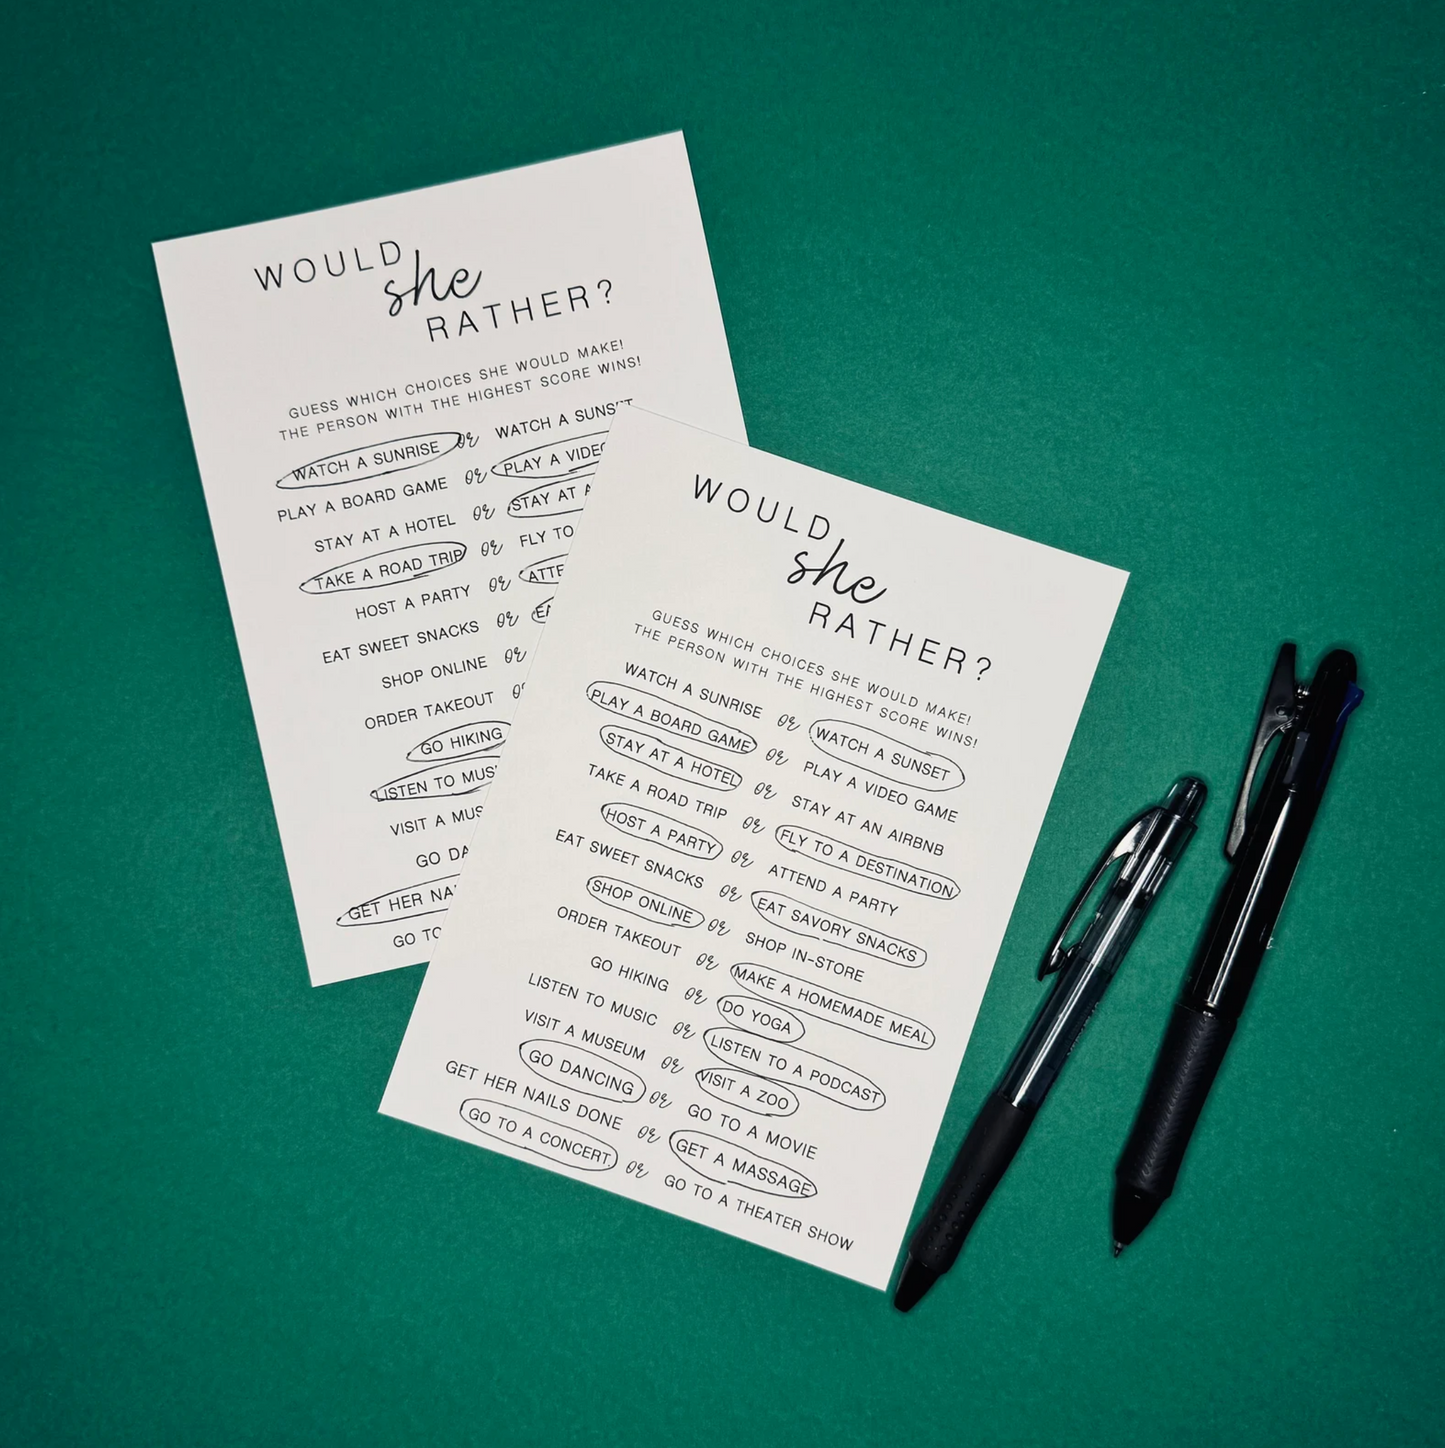 WOULD
she
RATHER?
GUESS WHICH CHOICES SHE WOULD MAKE!
THE PERSON WITH THE HIGHEST SCORE WINS!
WATCH A SUNRISE or WATCH A SUNSET
PLAY A BOARD GAME or PLAY A VIDEO
STAY AT A HOTEL or STAY AT
TAKE A ROAD TRIP or FLY TO
HOST A PARTY or
EAT SWEET SNACKS or
SHOP ONLINE or
ORDER TAKEOUT
GO HIKING
LISTEN TO
VISIT A
GO
GET HER
GO TO
WOULD
she
RATHER?
GUESS WHICH CHOICES SHE WOULD MAKE!
THE PERSON WITH THE HIGHEST SCORE WINS!
WATCH A SUNRISE or WATCH A SUNSET
PLAY A BOARD GAME or PLAY A VIDEO GAME
STAY AT A HOTEL or STAY AT AN AIRBNB
TAKE A ROAD TRIP or FLY TO A DESTINATION
HOST A PARTY or ATTEND A PARTY
EAT SWEET SNACKS or EAT SAVORY SNACKS
SHOP ONLINE or SHOP IN-STORE
ORDER TAKEOUT or MAKE A HOMEMADE MEAL
GO HIKING or DO YOGA
LISTEN TO MUSIC or LISTEN TO A PODCAST
VISIT A MUSEUM or VISIT A ZOO
GO DANCING or GO TO A MOVIE
GET HER NAILS DONE or GET A MASSAGE
GO TO A CONCERT or GO TO A THEATER SHOW